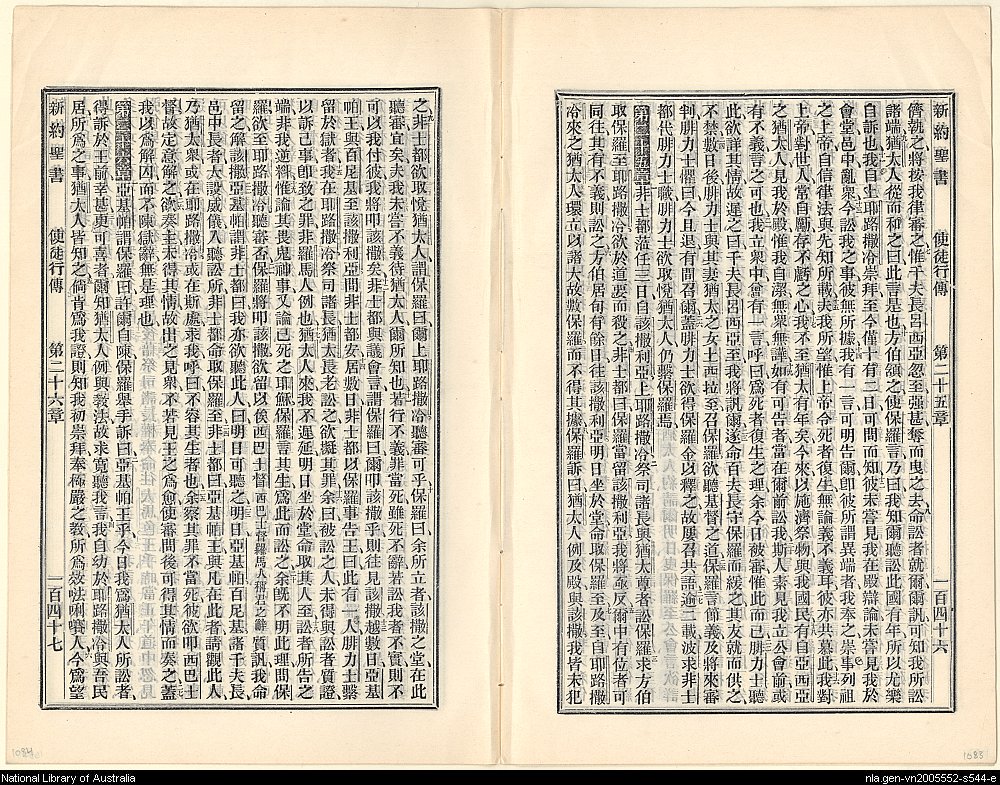 新約聖書 使徒行傳 第二十五章 一百四十六
儕執之將按我律審之惟千夫長呂西亞忽至强甚奪而曳之去命訟者就爾爾訊可知我所訟
諸端猶太人從而和之曰此言是也方伯頷之使保羅言乃曰我知爾聽訟此國有年所以尤樂
自訴也我自上耶路撒冷崇拜至今僅十有二日可問而知彼未嘗見我在殿辯論未嘗見我於
會堂邑中亂衆今訟我之事彼無所據我有一言可明告爾卽彼所謂異端者我奉之崇事列祖
之上帝自信律法與先知所載夫我所望惟上帝令死者復生無論義不義耳彼亦共慕此我對
上帝對世人常自勵存不虧之心我不至猶太有年矣今來以施濟祭物與我國民有自亞西亞
之猶太人見我於殿惟我自潔無衆無譁如有可告者當在爾前訟我斯人素見我立公會前或
有不義言之可也我立衆中曾有一言呼曰爲死者復生之理余今日被審惟此而已腓力士聽
此欲詳其情故遲之曰千夫長呂西亞至我將訊爾遂命百夫長守保羅而緩之其友就而供之
不禁數日後腓力士與其妻猶太之女土西拉至召保羅欲聽基督之道保羅言節義及將來審
判腓力士懼曰今且退有間召爾蓋腓力士欲得保羅金以釋之故屢召共語逾二載波求非士
都代腓力士職腓力士欲取悅猶太人仍繫保羅焉
第二十五章非士都蒞任三日自該撒利亞上耶路撒冷祭司諸長與猶太尊者訟保羅求方伯
取保羅至耶路撒冷欲於道要而殺之非士都曰保羅當留該撒利亞我將亟反爾中有位者可
同往其有不義則訟之方伯居旬有餘日往該撒利亞明日坐於堂命取保羅至及至自耶路撒
冷來之猶太人環立以諸大故數保羅而不得其據保羅訴曰猶太人例及殿與該撒我皆未犯
之非士都欲取悅猶太人謂保羅曰爾上耶路撒冷聽審可乎保羅曰余所立者該撒之堂在此
聽審宜矣夫我未嘗不義待猶太人爾所知也若行不義罪當死雖死不辭若訟我者不實則不
可以我付彼我將叩該撒矣非士都與議會言謂保羅曰爾叩該撒乎則往見該撒越數日亞基
帕王與百尼基至該撒利亞問非士都安居數日非士都以保羅事告王曰此有一人腓力士繫
留於獄者我在耶路撒冷祭司諸長猶太長老訟之欲擬其罪余曰被訟之人未得與訟者質證
以訴己事卽致之罪非羅馬人例也猶太人來我不遲延明日坐於堂命取其人至訟者所告之
端非我逆料惟論其畏鬼神事又論已死之耶穌保羅言其生爲此而訟之余旣不明此理問保
羅欲至耶路撒冷聽審否保羅將叩該撒欲留以俟西巴士督西巴士督羅馬人稱君之辭質訊我命
留之解該撒亞基帕謂非士都曰我亦欲聽此人曰明日可聽之明日亞基帕百尼基暨諸千夫長
邑中長者大設威儀入聽訟所非士都命取保羅至非士都曰亞基帕王與凡在此者請觀此人
乃猶太衆或在耶路撒冷或在斯處求我呼曰不容其生者也余察其罪不當死彼欲叩西巴士
督故定意解之欲奏主未得其情故出之見衆不若見王之爲愈使審問後可得其情而奏之蓋
我以爲解囚而不陳獄辭無是理也
第二十六章亞基帕謂保羅曰許爾自陳保羅舉手訴曰亞基帕王乎今日我爲猶太人所訟者
得訴於王前幸甚更可喜者爾知猶太人例與敎法故求寬聽我言我自幼於耶路撒冷與吾民
居所爲之事猶太人皆知之倘肯爲我證則知我初崇拜奉極嚴之敎所爲效法唎㘔人今爲望
新約聖書 使徒行傳 第二十六章 一百四十七
1084
1083
National Library of Australia
nla.gen-vn2005552-s544-e